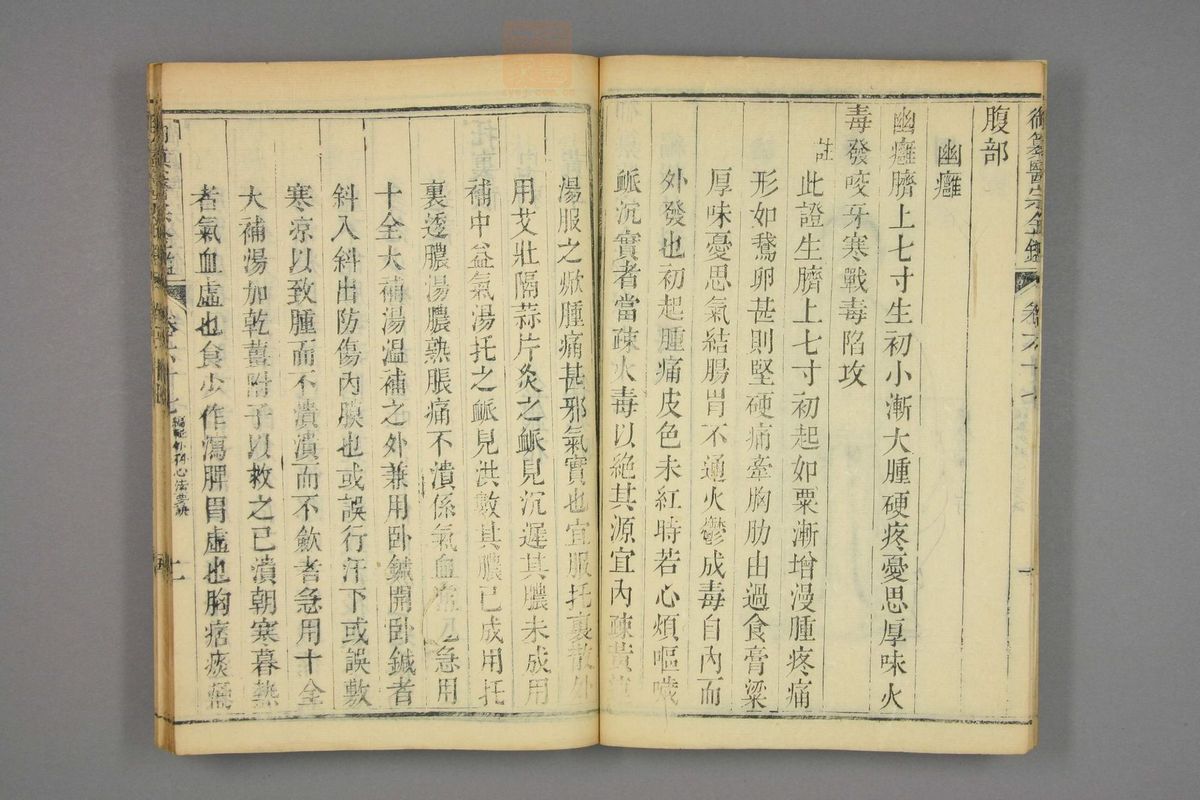 御纂醫宗金鑑 卷六十七
腹部
幽癰
幽癰臍上七寸生初小漸大腫硬疼憂思厚味火
毒發咬牙寒戰毒陷攻
註此證生臍上七寸初起如粟漸增漫腫疼痛
形如鵞卵甚則堅硬痛牽胸肋由過食膏粱
厚味憂思氣結腸胃不通火鬱成毒自內而
外發也初起腫痛皮色未紅時若心煩嘔噦
脈沉實者當疎火毒以絶其源宜內疎黃
湯服之焮腫痛甚邪氣實也宜服托裏散外
用艾壯隔蒜片灸之脈見沉遲其膿未成用
補中益氣湯托之脈見洪數其膿已成用托
裏透膿湯膿熟脹痛不潰係氣血急用
十全大補湯温補之外兼用臥鍼開臥鍼者
斜入斜出防傷內膜也或誤行汗下或誤敷
寒凉以致腫而不潰潰而不歛者急用十全
大補湯加乾薑附子以救之已潰朝寒暮熱
者氣血虛也食少作瀉脾胃虛也胸痞痰
卷六十七 編輯外科心法要訣